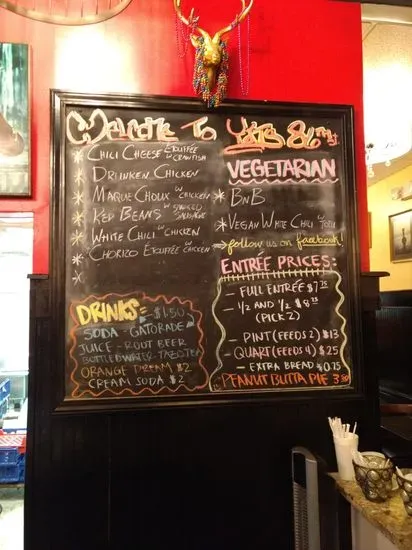 Welcome To Yats 86th St.
* Chili Cheese Étouffée w/ Crawfish
* Drunken Chicken
* Maque Choux w/ Chicken
* Red Beans w/ Sauced Sausage
* White Chili w/ Chicken
* Chorizo Étouffée w/ Chicken
*
VEGETARIAN
* BnB
* Vegan White Chili w/ Tofu
follow us on facebook!
ENTRÉE PRICES:
- Full Entrée $7.75
- 1/2 and 1/2 $8
(Pick 2)
- Pint (feeds 2) $13
- Quart (feeds 4) $25
- Extra Bread $0.75
Peanut Butta Pie 3.50
DRINKS: - $1.50
Soda - Gatorade
Juice - Root Beer
Bottled Water - Iced Tea
Orange Dream $2
Cream Soda $2